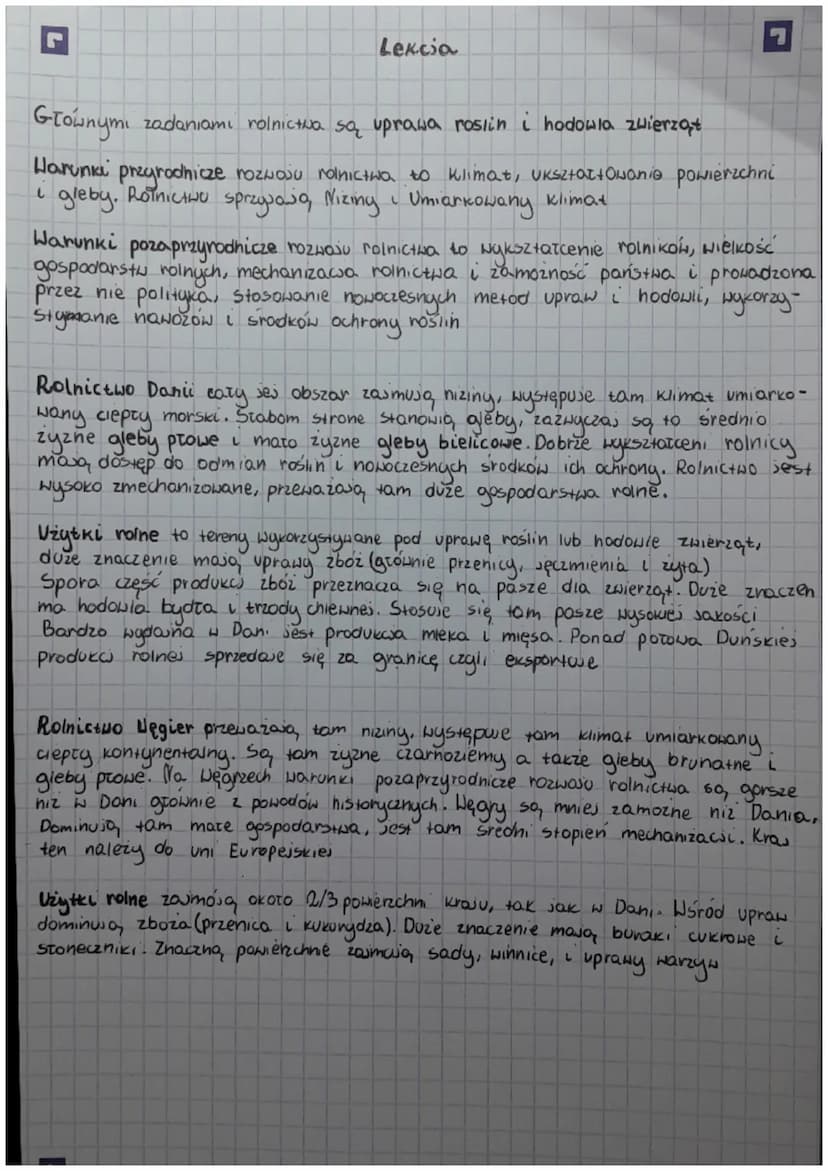 Lekcja
Głównymi zadaniami rolnictwa są uprawa roślin i hodowla zwierząt
Warunki przyrodnicze rozwoju rolnictwa to klimat, ukształtowanie powierzchni
i gleby. Rolnictwu sprzyjają Niziny i Umiarkowany klimat
Warunki pozaprzyrodnicze rozwoju rolnictwa to wykształcenie rolników, wielkość
gospodarstw rolnych, mechanizacja rolnictwa i zamożność państwa i prowadzona
przez nie polityka, stosowanie nowoczesnych metod upraw i hodowli, wykorzy-
stywanie nawozów i środków ochrony roślin
Rolnictwo Danii cały jej obszar zajmują niziny, występuje tam klimat umiarko-
wany ciepły morski. Słabom strone stanowią gleby, zazwyczaj są to średnio
żyzne gleby płowe i mało żyzne gleby bielicowe. Dobrze wykształceni rolnicy
mają dostęp do odmian roślin i nowoczesnych środków ich ochrony. Rolnictwo jest
wysoko zmechanizowane, przeważają tam duże gospodarstwa rolne.
Użytki rolne to tereny wykorzystywane pod uprawę roślin lub hodowle zwierząt,
duże znaczenie mają uprawy zbóż (głównie przenicy, jęczmienia i żyta)
Spora część produkcj zbóż przeznacza się na pasze dla zwierząt. Duże znaczen
ma hodowla bydła i trzody chlewnej. Stosuje się tam pasze wysokiej jakości
Bardzo wydajna w Dani jest produkcja mleka i mięsa. Ponad połowa Duńskiej
produkcj rolnej sprzedaje się za granicę czyli eksportuje
Rolnictwo Węgier przeważają tam niziny, występuje tam klimat umiarkowany
ciepły kontynentalny. Są tam żyzne czarnoziemy a także gleby brunatne i
gleby płowe. Na Węgrzech warunki pozaprzyrodnicze rozwoju rolnictwa są gorsze
niż w Dani głównie z powodów historycznych. Węgry są mniej zamożne niż Dania.
Dominują tam małe gospodarstwa, jest tam średni stopień mechanizacji. Kraj
ten należy do uni Europejskiej
Użytki rolne zajmóją około 2/3 powierzchni kraju, tak jak w Dani. Wśród upraw
dominują zboża (przenica i kukurydza). Duże znaczenie mają buraki cukrowe i
słoneczniki. Znaczną powierzchnie zajmują sady, winnice, i uprawy warzyw